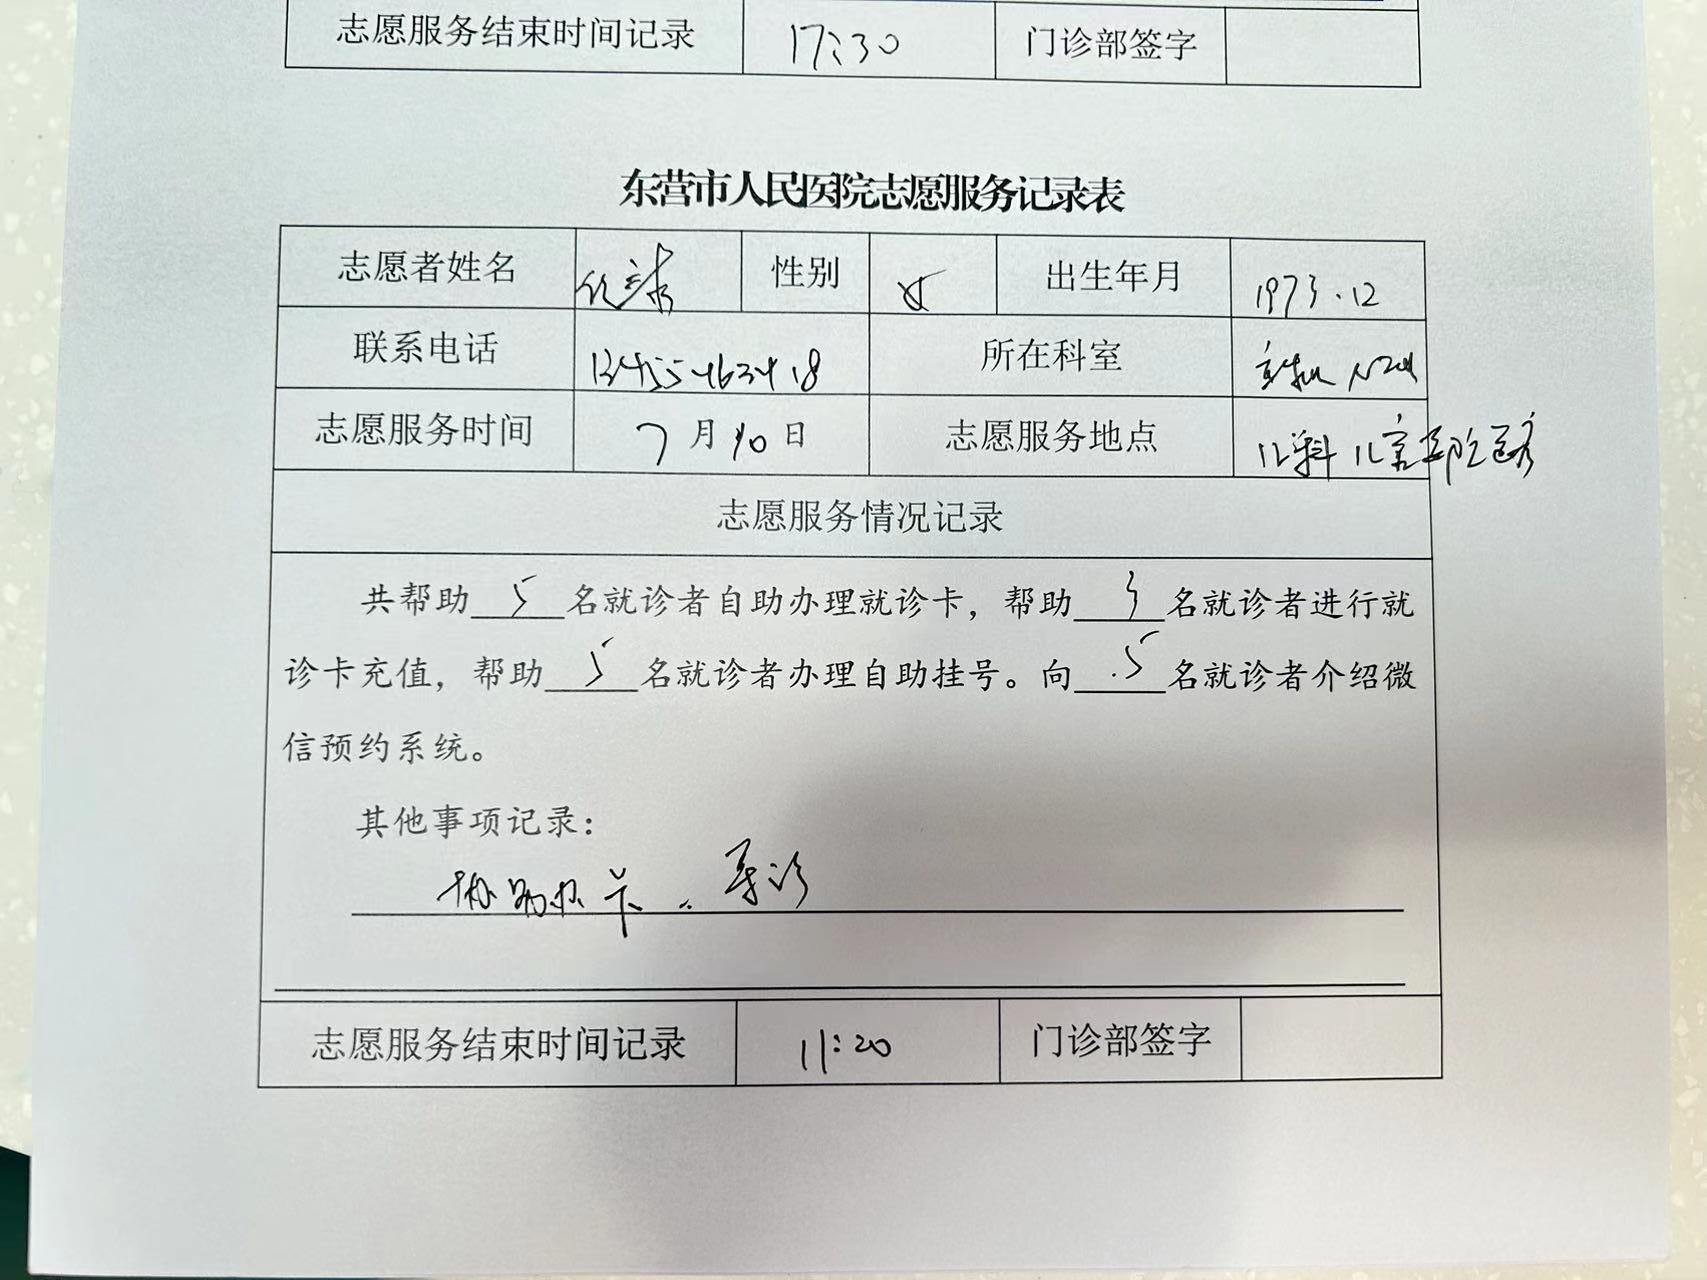 志愿服务结束时间记录 17:30 门诊部签字
东营市人民医院志愿服务记录表
志愿者姓名 性别 女 出生年月 1973.12
联系电话 所在科室
志愿服务时间 7月10日 志愿服务地点 儿科 儿童
志愿服务情况记录
共帮助 5 名就诊者自助办理就诊卡，帮助 3 名就诊者进行就
诊卡充值，帮助 5 名就诊者办理自助挂号。向 .5 名就诊者介绍微
信预约系统。
其他事项记录：
协助办卡、导诊
志愿服务结束时间记录 11:20 门诊部签字